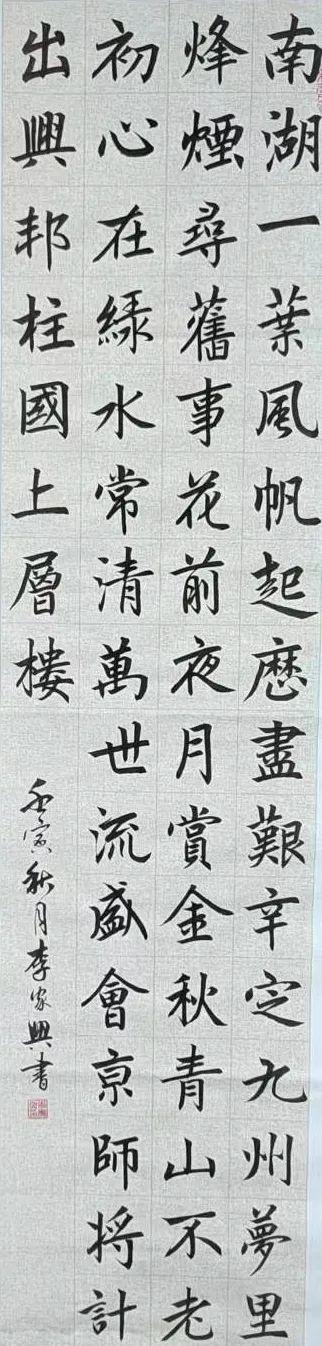 南湖一葉風帆起歷盡艱辛定九州夢里
烽煙尋舊事花前夜月賞金秋青山不老
初心在綠水常清萬世流盛會京師將計
出興邦柱國上層樓
壬寅秋月李家興書